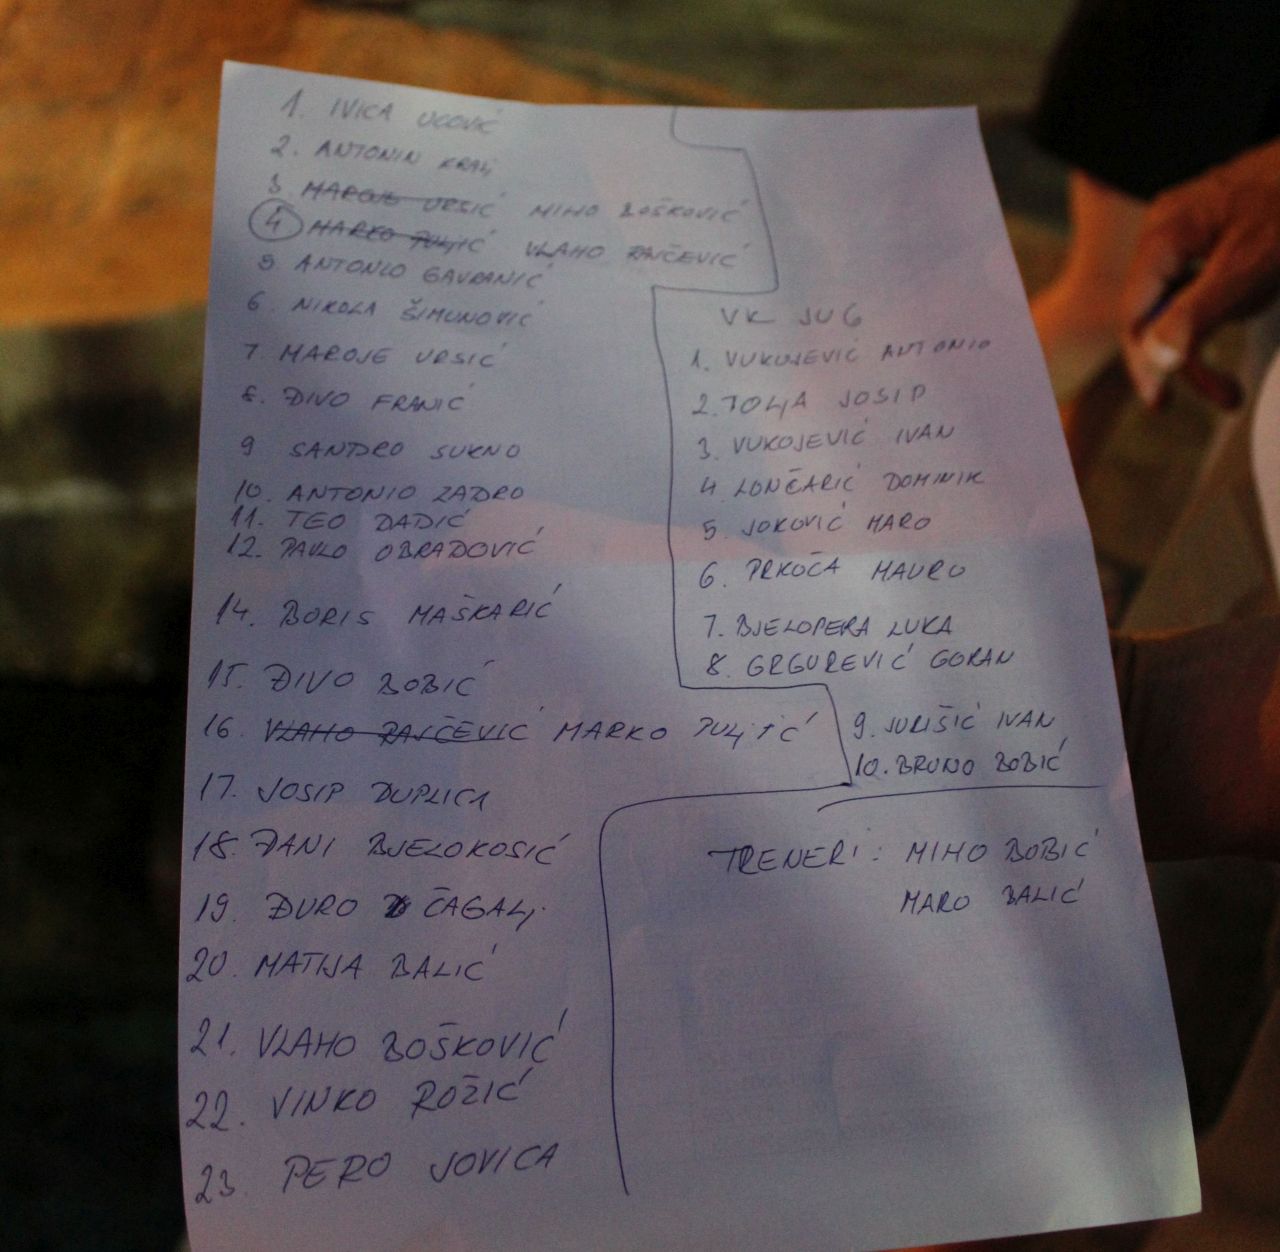 1. IVICA UCOVIĆ
2. ANTONIN KRALJ
3 MAROJE URSIĆ MIHO BOŠKOVIĆ
4 MARKO PULJIĆ VLAHO RAJČEVIĆ
5 ANTONIO GAVRANIĆ
6. NIKOLA ŠIMUNOVIĆ
7 MAROJE URSIĆ
8. ĐIVO FRANIĆ
9 SANDRO SUKNO
10. ANTONIO ZADRO
11. TEO DADIĆ
12. PAVLO OBRADOVIĆ
14. BORIS MAŠKARIĆ
15. ĐIVO BOBIĆ
16 VLAHO RAJČEVIĆ MARKO PULJIĆ
17. JOSIP DUPLICA
18. ĐANI BJELOKOSIĆ
19. ĐURO ČAGALJ
20. MATIJA BALIĆ
21. VLAHO BOŠKOVIĆ
22. VINKO ROŽIĆ
23. PERO JOVICA
VK JUG
1. VUKOJEVIĆ ANTONIO
2. TOLJA JOSIP
3. VUKOJEVIĆ IVAN
4 LONČARIĆ DOMINIK
5. JOKOVIĆ MARO
6. PRKOČA MAURO
7. BJELOPERA LUKA
8. GRGUREVIĆ GORAN
9. JURIŠIĆ IVAN
10. BRUNO BOBIĆ
TRENERI: MIHO BOBIĆ
MARO BALIĆ